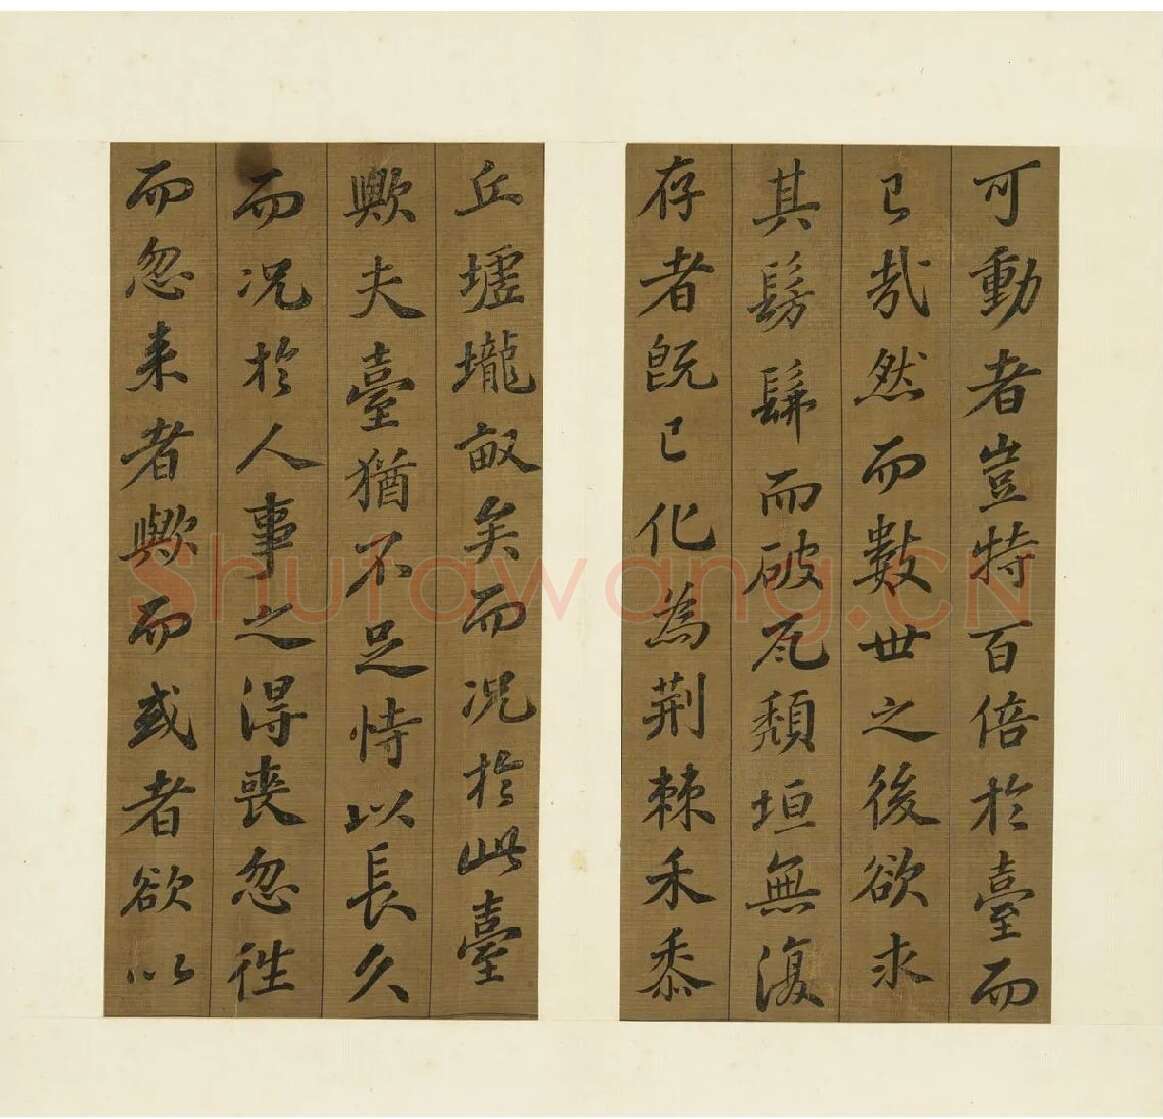 可動者豈特百倍於臺而
已哉然而數世之後欲求
其髣髴而破瓦頹垣無復
存者既已化為荆棘禾黍
丘墟壠畝矣而况於此臺
歟夫臺猶不足恃以長久
而况於人事之得喪忽徃
而忽来者歟而或者欲以
Shufawang.CN